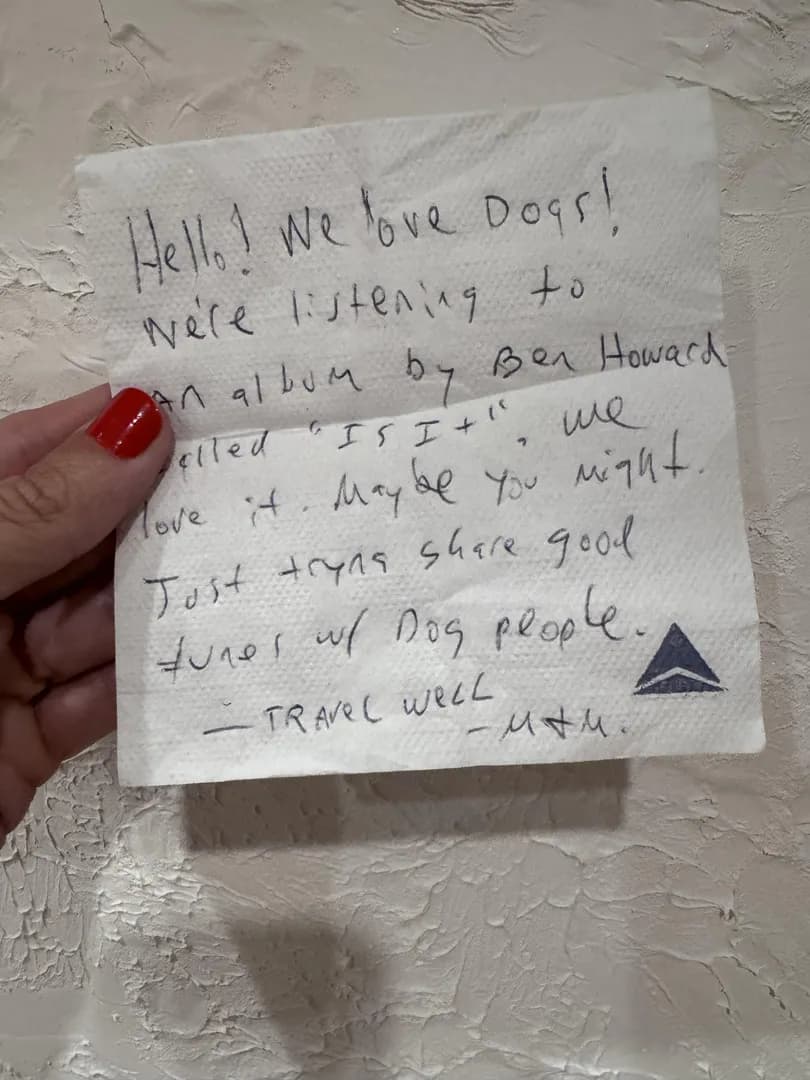 Hello! We love Dogs!
We're listening to
An album by Ben Howard
called "Is It". We
love it. Maybe you might.
Just tryna share good
tunes w/ Dog people.
— TRAVEL WELL
- M + M.